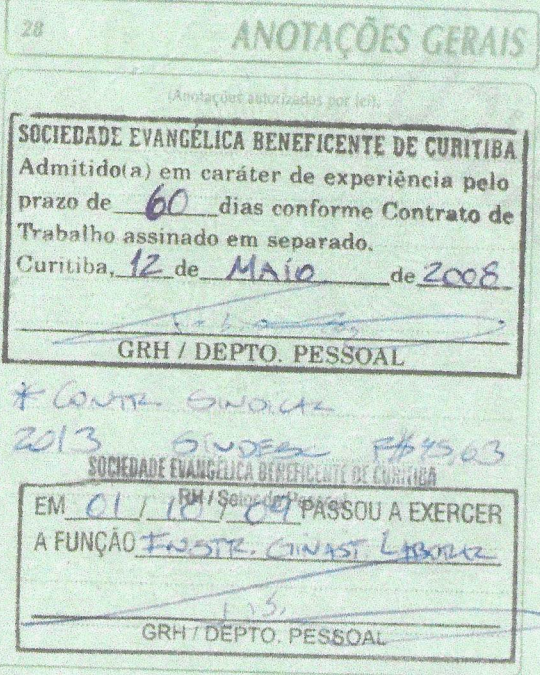 28 ANOTAÇÕES GERAIS
(Anotações autorizadas por lei).
SOCIEDADE EVANGÉLICA BENEFICENTE DE CURITIBA
Admitido(a) em caráter de experiência pelo
prazo de 60 dias conforme Contrato de
Trabalho assinado em separado.
Curitiba, 12 de MAIO de 2008
GRH / DEPTO. PESSOAL
* CONTR. SINDICAL
2013 SINDESC
SOCIEDADE EVANGÉLICA BENEFICENTE DE CURITIBA
RH / Setor de Pessoal
EM 01 / 10 / 09 PASSOU A EXERCER
A FUNÇÃO INSTR. GINAST. LABORAL
GRH / DEPTO. PESSOAL